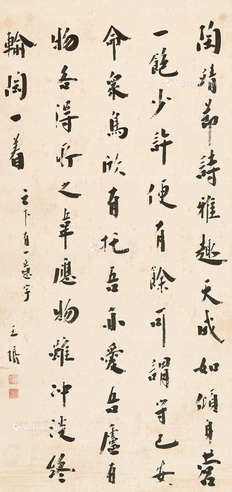 陶靖節詩雅趣天成如傾身營
一飽少許便有餘可謂守己安
命衆鳥欣有托吾亦愛吾廬有
物各得所之樂應物雖沖淡終
輸陶一着
之下有一意字